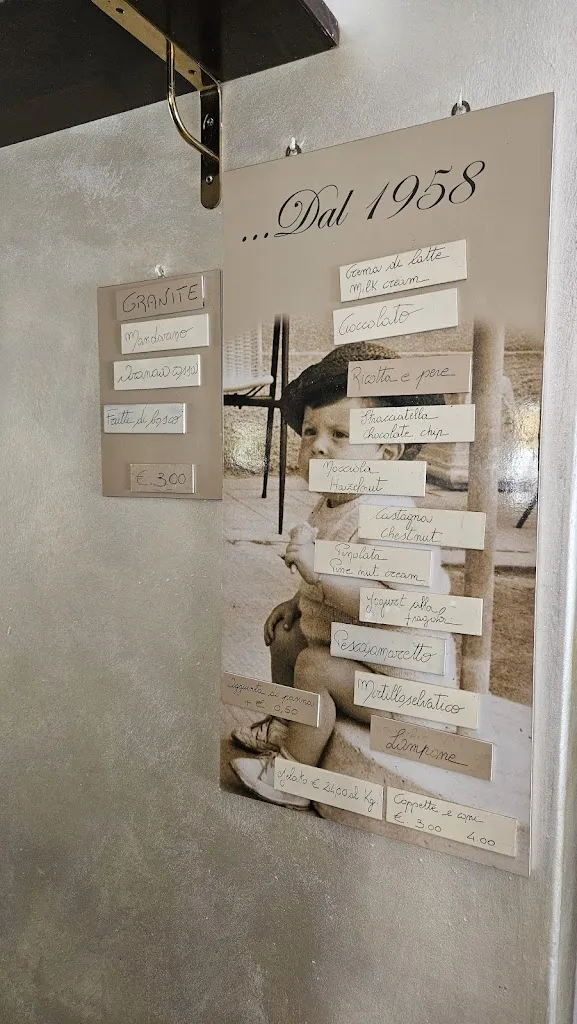 ...Dal 1958
Crema di latte
Milk cream
Cioccolato
Ricotta e pere
Stracciatella
chocolate chip
Nocciola
Hazelnut
Castagna
Chestnut
Pinolata
Pine nut cream
Yogurt alla
fragola
Pescaamaretto
Mirtilloselvatico
Lampone
Aggiunta di panna
+ € 0,50
Gelato € 24,00 al Kg
Coppette e coni
€. 3.00 4.00
GRANITE
Mandarino
Arancia rossa
Frutti di bosco
€. 3.00